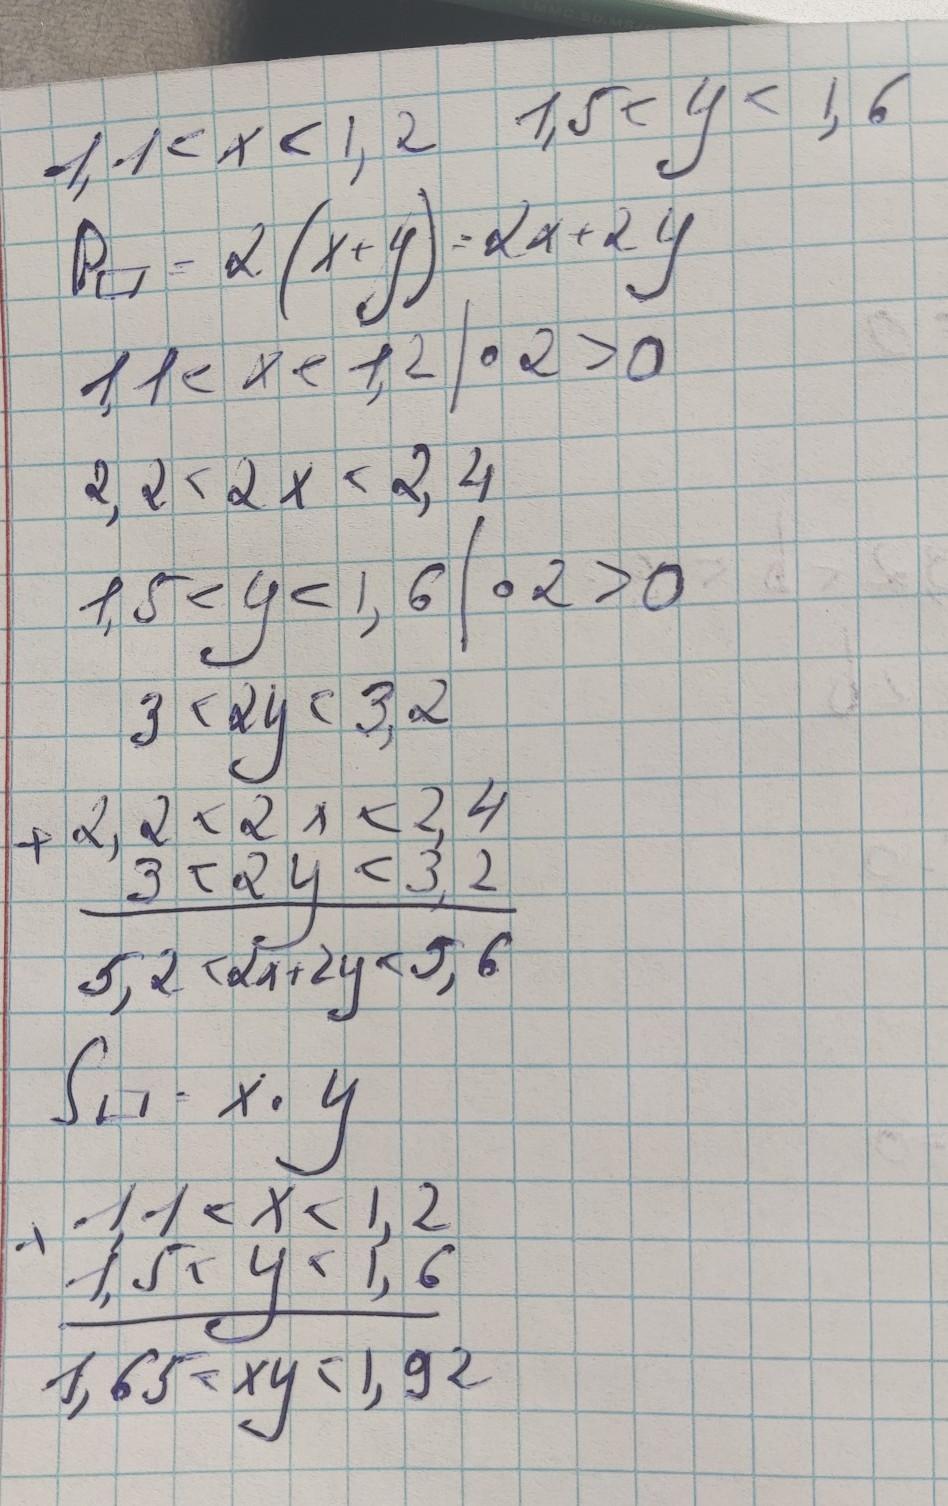 1,1 < x < 1,2   1,5 < y < 1,6
P▭ = 2(x+y) = 2x+2y
1,1 < x < 1,2 | • 2 > 0
2,2 < 2x < 2,4
1,5 < y < 1,6 | • 2 > 0
3 < 2y < 3,2
+ 2,2 < 2x < 2,4
3 < 2y < 3,2
5,2 < 2x+2y < 5,6
S▭ = x • y
× 1,1 < x < 1,2
1,5 < y < 1,6
1,65 < xy < 1,92